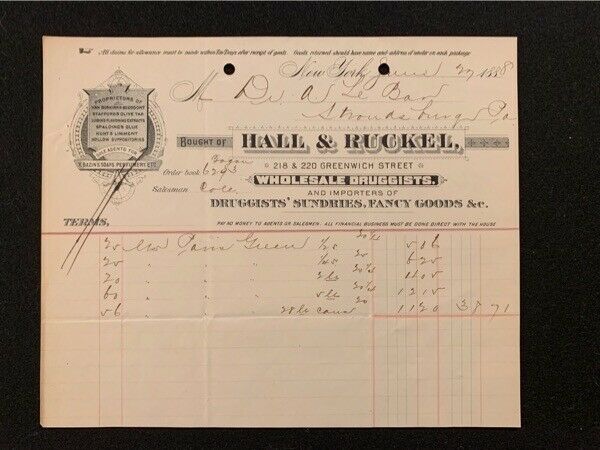 All claims for allowance must be made within Ten Days after receipt of goods. Goods returned should have name and address of sender on each package
New York, June 27 1888
M Dr A Le Bar
Stroudsburg Pa
PROPRIETORS OF
VAN BUSKIRK'S SOZODONT
STAFFORD'S OLIVE TAR
LUBIN'S FLAVORING EXTRACTS
SPALDING'S GLUE
HUNT'S LINIMENT
HOLLOW SUPPOSITORIES
SOLE AGENTS FOR
X. BAZIN'S SOAPS PERFUMERY, ETC.
BOUGHT OF HALL & RUCKEL,
218 & 220 GREENWICH STREET
Order book 6293
WHOLESALE DRUGGISTS,
Salesman Cole
AND IMPORTERS OF
DRUGGISTS' SUNDRIES, FANCY GOODS &c.
TERMS,
PAY NO MONEY TO AGENTS OR SALESMEN. ALL FINANCIAL BUSINESS MUST BE DONE DIRECT WITH THE HOUSE
20 Paris Green 20½
20 " " " 20 6 20
20 " " " 20½
60 " " " 20 12 15
56 " " 28 lb cans 11 20 37 71